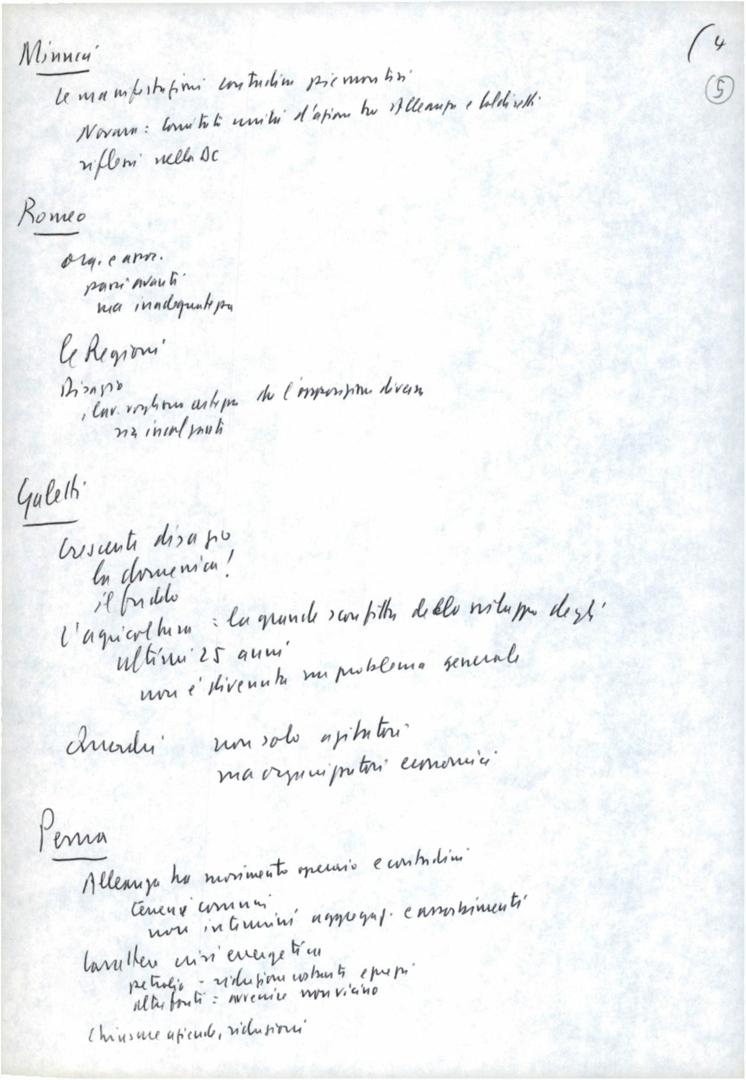 (4
5
Minucci
Le manifestazioni contadine piemontesi
Novara: Comitati unitari d'azione tra Alleanza e Coldiretti
riflessi nella DC
Romeo
org. e assoc.
passi avanti
ma inadeguatezza
le Regioni
Disagio
che l'opposizione diversa
Galetti
Crescente disagio
la domenica!
il freddo
L'agricoltura: la grande sconfitta dello sviluppo degli
ultimi 25 anni
non è divenuta un problema generale
Quadri non solo agitatori
ma organizzatori economici
Perna
Alleanza tra movimento operaio e contadini
terreni comuni
non aggregaz. e assorbimenti
Carattere crisi energetica
petrolio - riduzione costante e prezzi
altre fonti: avvenire non vicino
Chiusure aziende, riduzioni